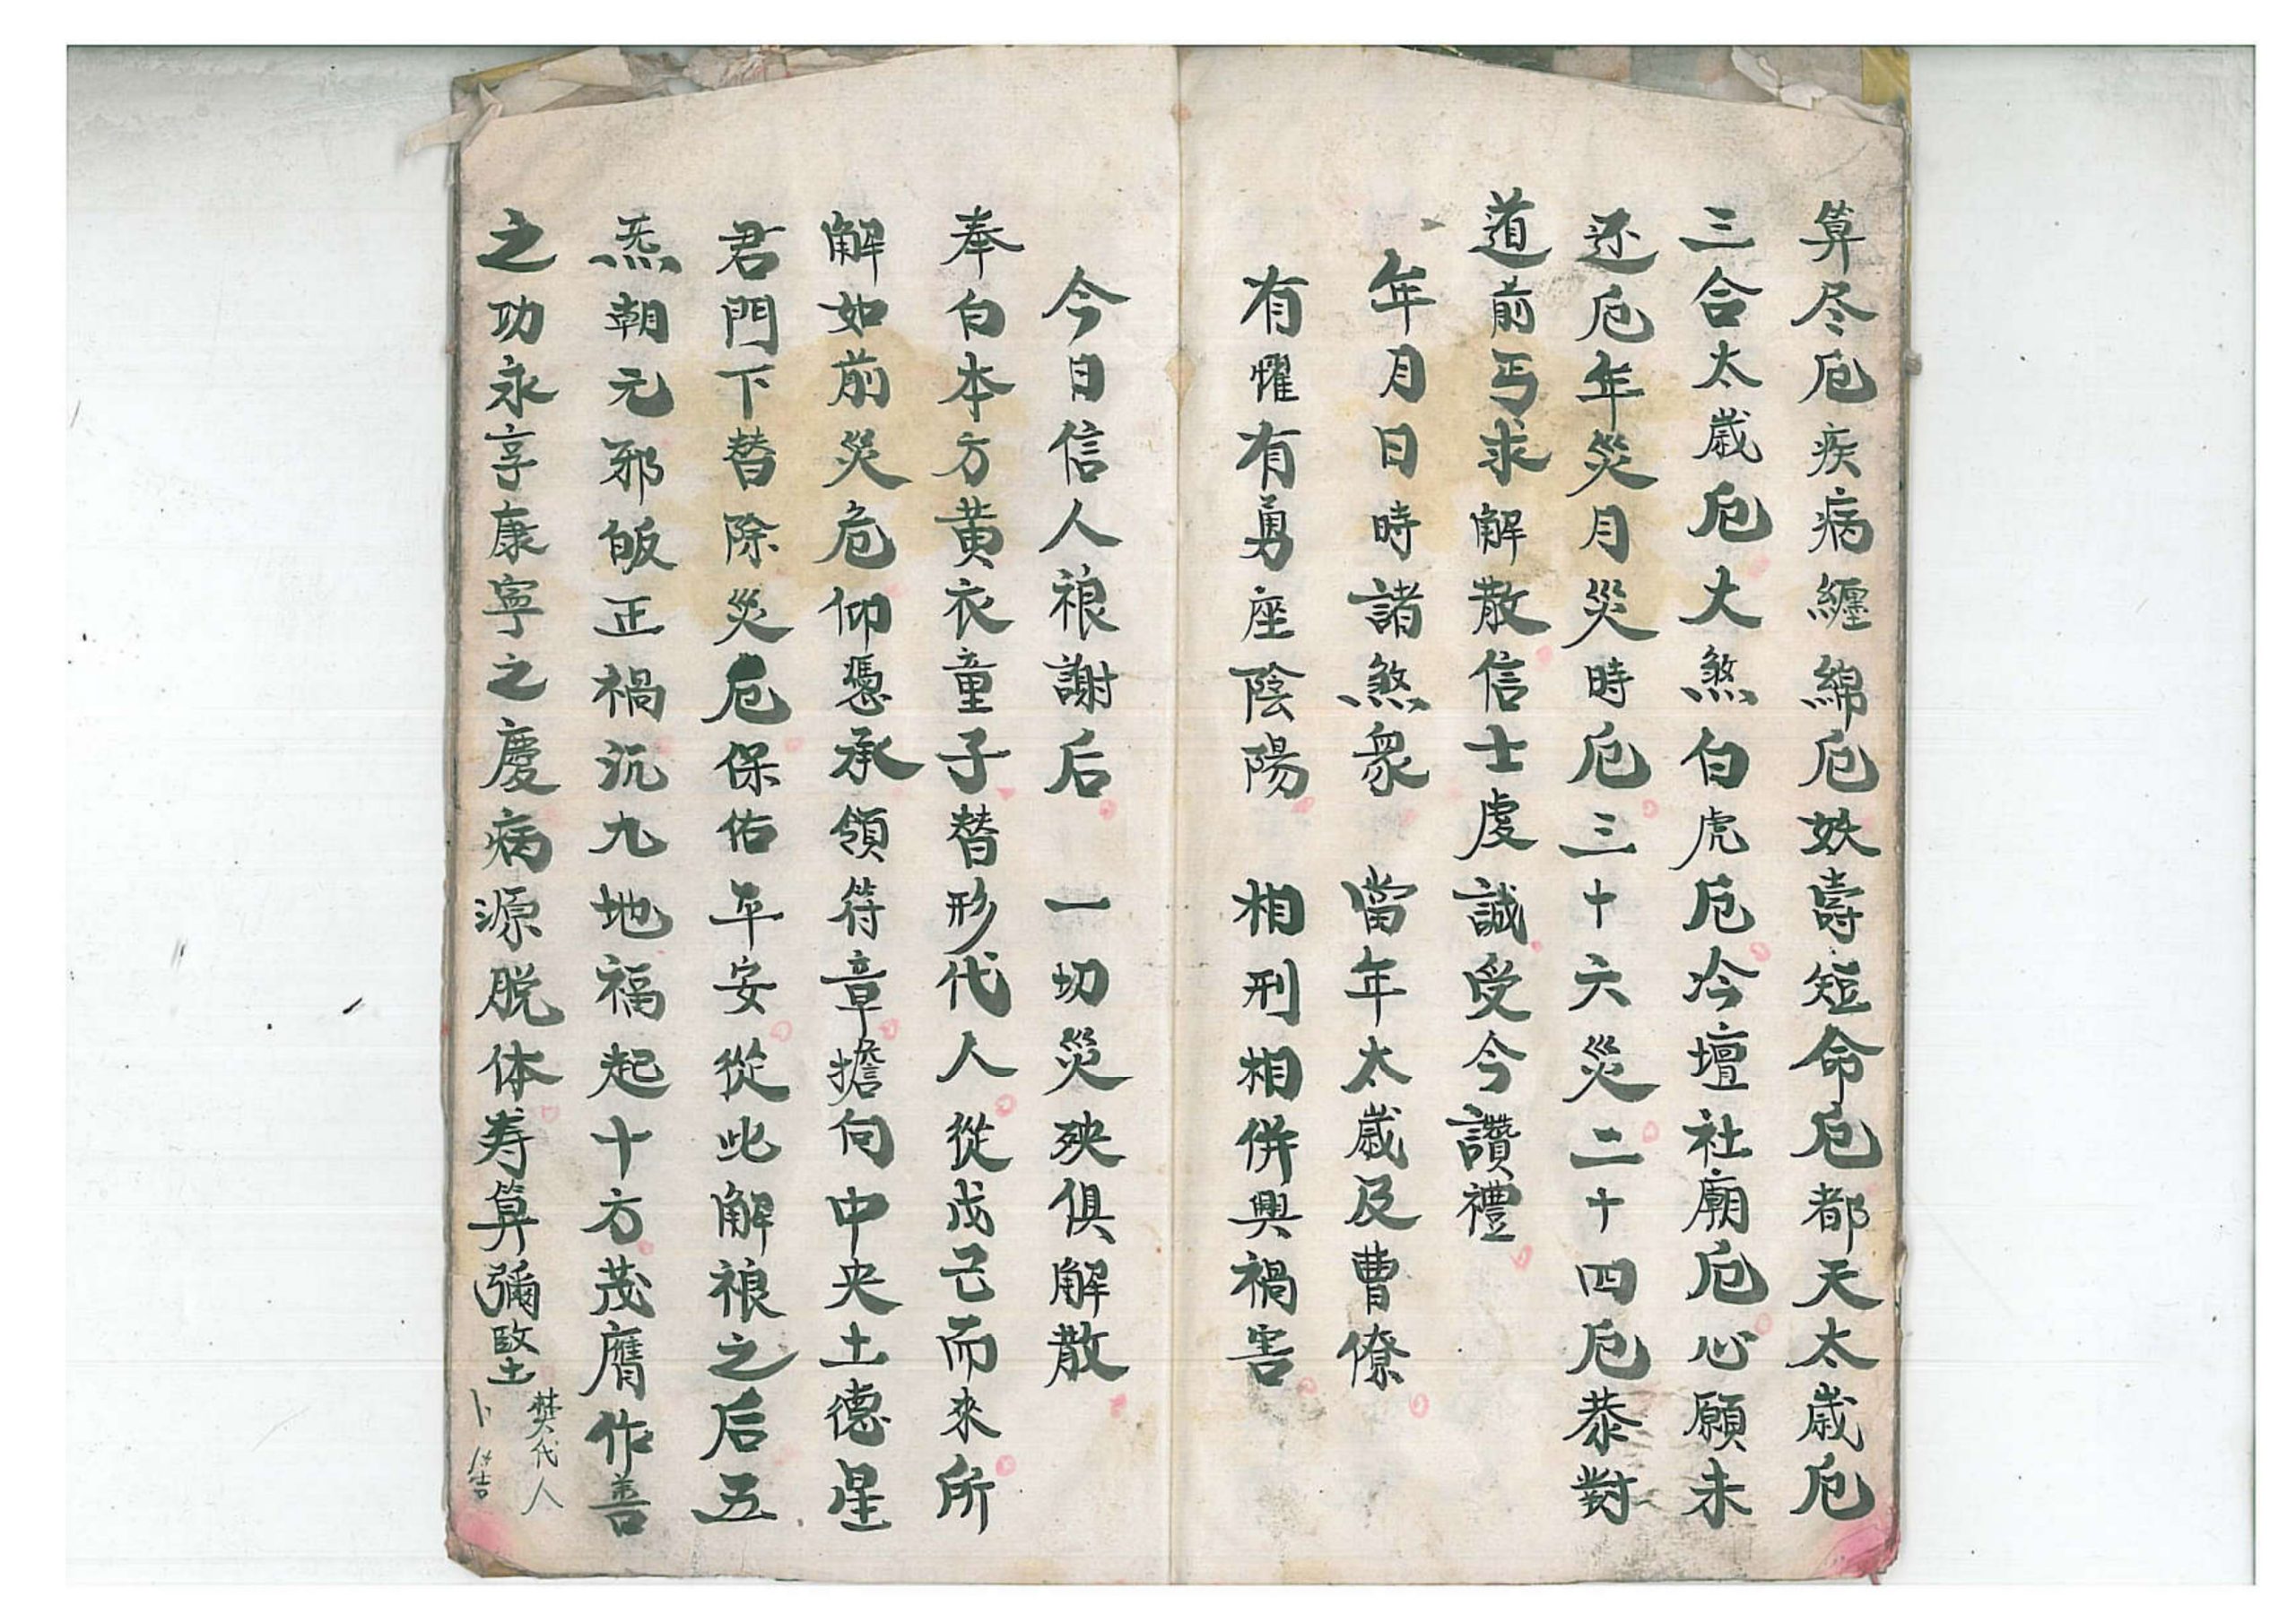 算尽厄疾病纏綿厄妖壽短命厄都天太歲厄
三合太歲厄大煞白虎厄冷壇社廟厄心願未
还厄年災月災時厄三十六災二十四厄恭對
道前丐求解散信士虔誠受今讚禮
年月日時諸煞衆　當年太歲及曹僚
有懼有勇座陰陽　相刑相併興禍害
今日信人禳謝后　一切災殃俱解散
奉白本方黄衣童子替形代人從戊己而來所
解如前災危仰憑承領符章擔向中央土德星
君門下替除災厄保佑平安從此解禳之后五
炁朝元邪皈正禍沉九地福起十方茂膺作善
之功永享康寧之慶病源脱体寿算彌堅
焚代人